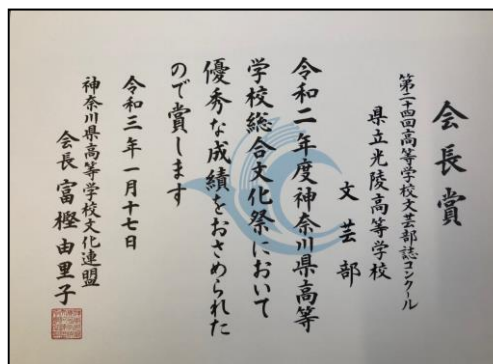 会長賞
第二十四回高等学校文芸部誌コンクール
県立光陵高等学校
文芸部
令和二年度神奈川県高等
学校総合文化祭において
優秀な成績をおさめられた
ので賞します
令和三年一月十七日
神奈川県高等学校文化連盟
会長 富樫由里子